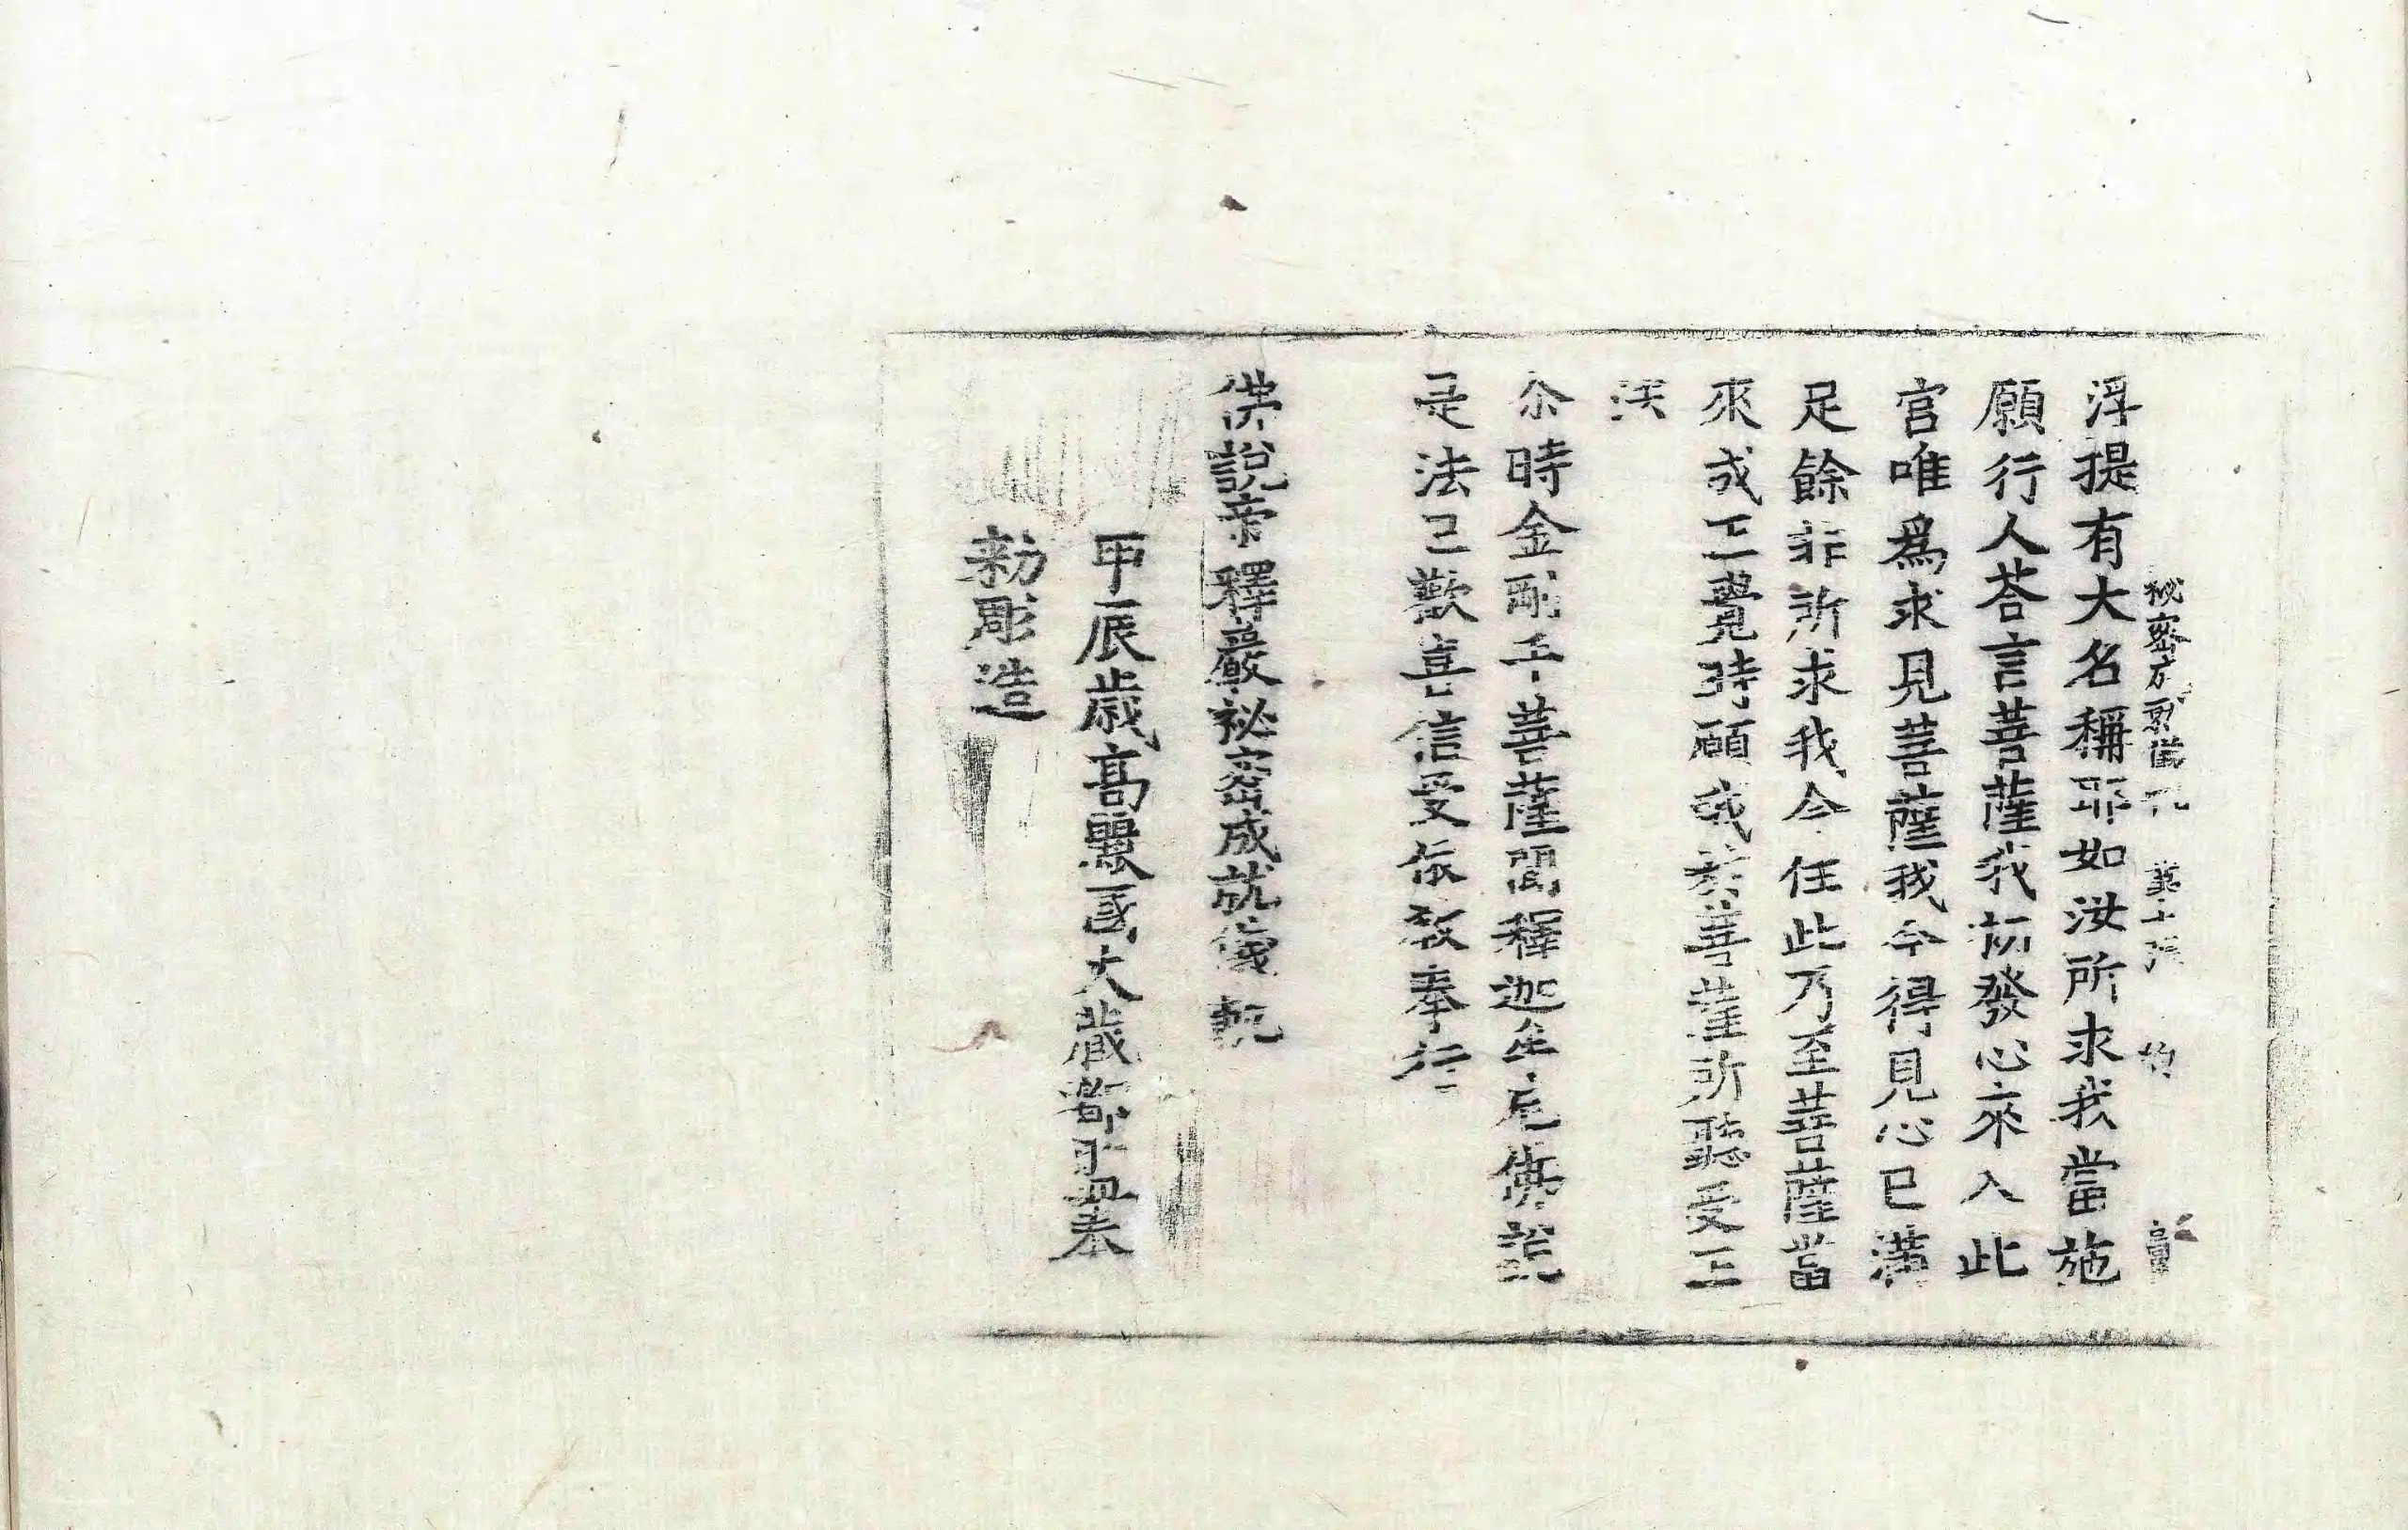 秘密成就儀軌 第十張 
浮提有大名稱耶如汝所求我當施
願行人荅言菩薩我初發心來入此
宮唯爲求見菩薩我今得見心已滿
足餘非所求我今任此乃至菩薩當
來成正覺時願我於菩薩所聽受正
法
尒時金剛手菩薩聞釋迦牟尼佛說
是法已歡喜信受依教奉行
佛說帝釋巖祕密成就儀軌
甲辰歳高麗國大藏都監奉
勅彫造